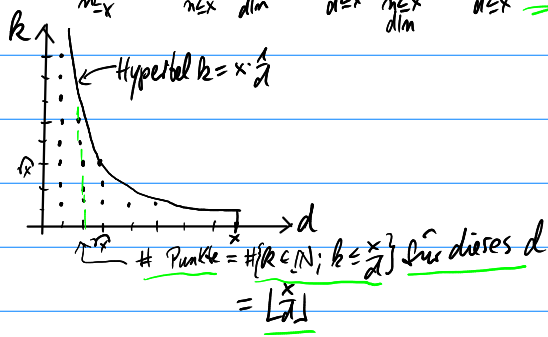 n≤x n≤x d|n d≤x n≤x d≤x
d|n
k
Hyperbel k = x·1/d
√x
d
√x x
# Punkte = #{k ∈ ℕ; k ≤ x/d} für dieses d
= ⌊x/d⌋